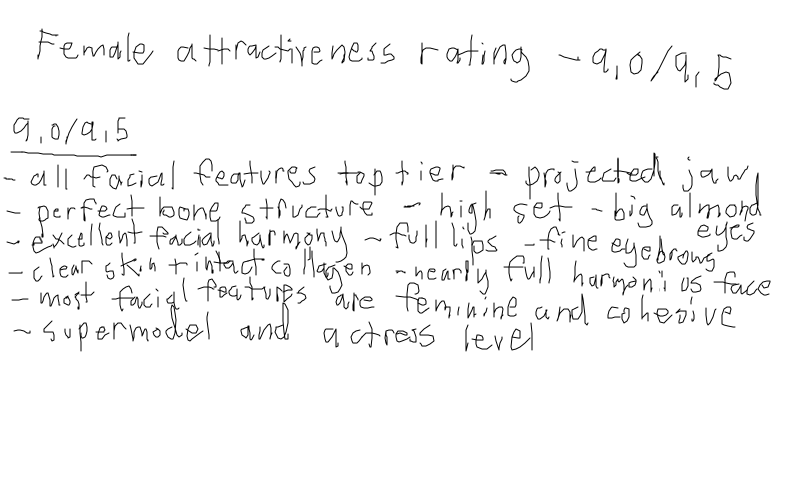 Female attractiveness rating - 9,0/9,5
9,0/9,5
- all facial features top tier - projected jaw,
- perfect bone structure - high set - big almond eyes
- excellent facial harmony - full lips - fine eyebrows
- clear skin + intact collagen - nearly full harmonious face
- most facial features are feminine and cohesive
- supermodel and actress level